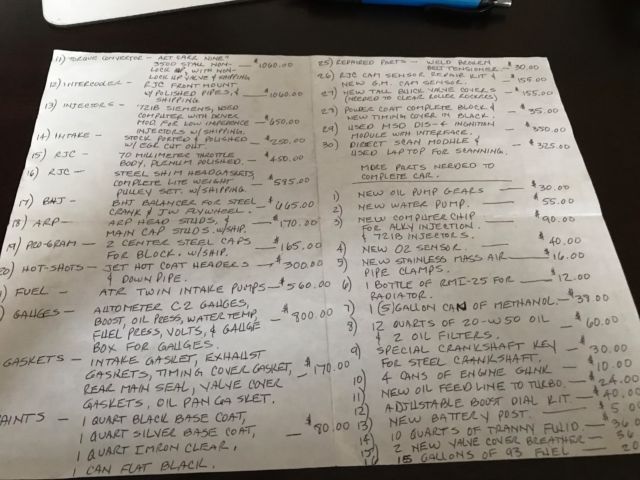 11) TORQUE CONVERTOR - ART CARR NINE"
3500 STALL NON- - $1060.00
LOCK UP, WITH NON-
LOCK UP VALVE & SHIPPING
12) INTERCOOLER - RJC FRONT MOUNT
W/POLISHED PIPES, & - $1060.00
SHIPPING.
13) INJECTORS - '721B SIEMENS, NORD
COMPUTER WITH DRIVER
MOD FOR LOW IMPEDENCE - $650.00
INJECTORS W/ SHIPPING.
14) INTAKE - STOCK PORTED & POLISHED - $250.00
W/ EGR CUT OUT.
15) RJC - 70 MILLIMETER THROTTLE - $450.00
BODY, PLENUM POLISHED.
16) RJC - STEEL SHIM HEADGASKETS,
COMPLETE LITE WEIGHT - $595.00
PULLEY SET. W/SHIPPING.
17) BHJ - BHJ BALANCER FOR STEEL - $465.00
CRANK & JW FLYWHEEL.
18) ARP - ARP HEAD STUDS, & - $170.00
MAIN CAP STUDS. W/SHIP.
19) PRO-GRAM - 2 CENTER STEEL CAPS - $165.00
FOR BLOCK. W/SHIP.
20) HOT-SHOTS - JET HOT COAT HEADERS - $300.00
& DOWN PIPE.
) FUEL - ATR TWIN INTAKE PUMPS - $560.00
) GAUGES - AUTOMETER C2 GAUGES,
BOOST, OIL PRESS, WATER TEMP, - $800.00
FUEL PRESS, VOLTS, & GAUGE
BOX FOR GAUGES.
GASKETS - INTAKE GASKET, EXHAUST
GASKETS, TIMING COVER GASKET, - $170.00
REAR MAIN SEAL, VALVE COVER
GASKETS, OIL PAN GASKET.
AINTS - 1 QUART BLACK BASE COAT,
1 QUART SILVER BASE COAT, - $80.00
1 QUART IMRON CLEAR,
1 CAN FLAT BLACK.
25) REPAIRED PARTS - WELD BROKEN
BELT TENSIONER - $30.00
26) RJC CAM SENSOR REPAIR KIT & - $155.00
NEW G.M. CAM SENSOR.
27) NEW TALL BUICK VALVE COVERS - $155.00
(NEEDED TO CLEAR ROLLER ROCKERS)
28) POWER COAT COMPLETE BLOCK & - $35.00
NEW TIMING COVER IN BLACK.
29) USED MSD DIS-4 IGNITION - $350.00
MODULE WITH INTERFACE.
30) DIRECT SCAN MODULE & - $325.00
USED LAPTOP FOR SCANNING.
MORE PARTS NEEDED TO
COMPLETE CAR.
1) NEW OIL PUMP GEARS - $30.00
2) NEW WATER PUMP. - $55.00
3) NEW COMPUTER CHIP - $90.00
FOR ALKY INJECTION.
& 721B INJECTORS.
4) NEW O2 SENSOR. - $40.00
5) NEW STAINLESS MASS AIR - $16.00
PIPE CLAMPS.
6) 1 BOTTLE OF RMI-25 FOR - $12.00
RADIATOR.
7) 1 (5) GALLON CAN OF METHANOL. - $39.00
8) 12 QUARTS OF 20-W50 OIL - $60.00
& 2 OIL FILTERS.
9) SPECIAL CRANKSHAFT KEY - $30.00
FOR STEEL CRANKSHAFT.
10) 4 CANS OF ENGINE GUNK - $10.00
11) NEW OIL FEED LINE TO TURBO. - $24.00
12) ADJUSTABLE BOOST DIAL KIT - $40.00
13) NEW BATTERY POST. - $5.0
14) 10 QUARTS OF TRANNY FLUID - $36.0
15) 2 NEW VALVE COVER BREATHER - 36
15 GALLONS OF 93 FUEL - 20